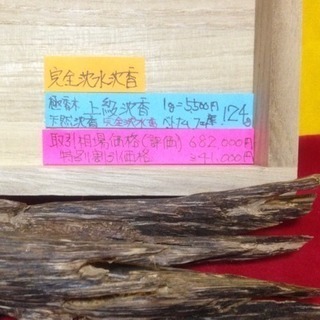 完全沈水沈香
上級沈香 1g=5,500円 124g
天然沈香 完全沈水香 ベトナム
取引相場価格(評価) 682,000円
特別割引価格 341,000円